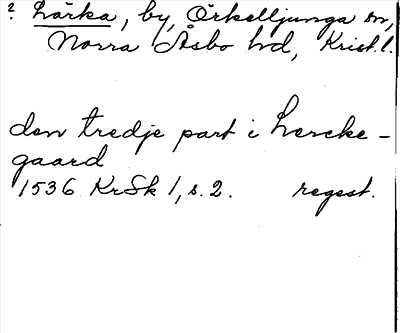 ? Lärka, by, Örkelljunga sn,
Norra Åsbo hd, Krist. l.
den tredje part i Lercke-
gaard
1536 KrSk 1, s. 2. regest.